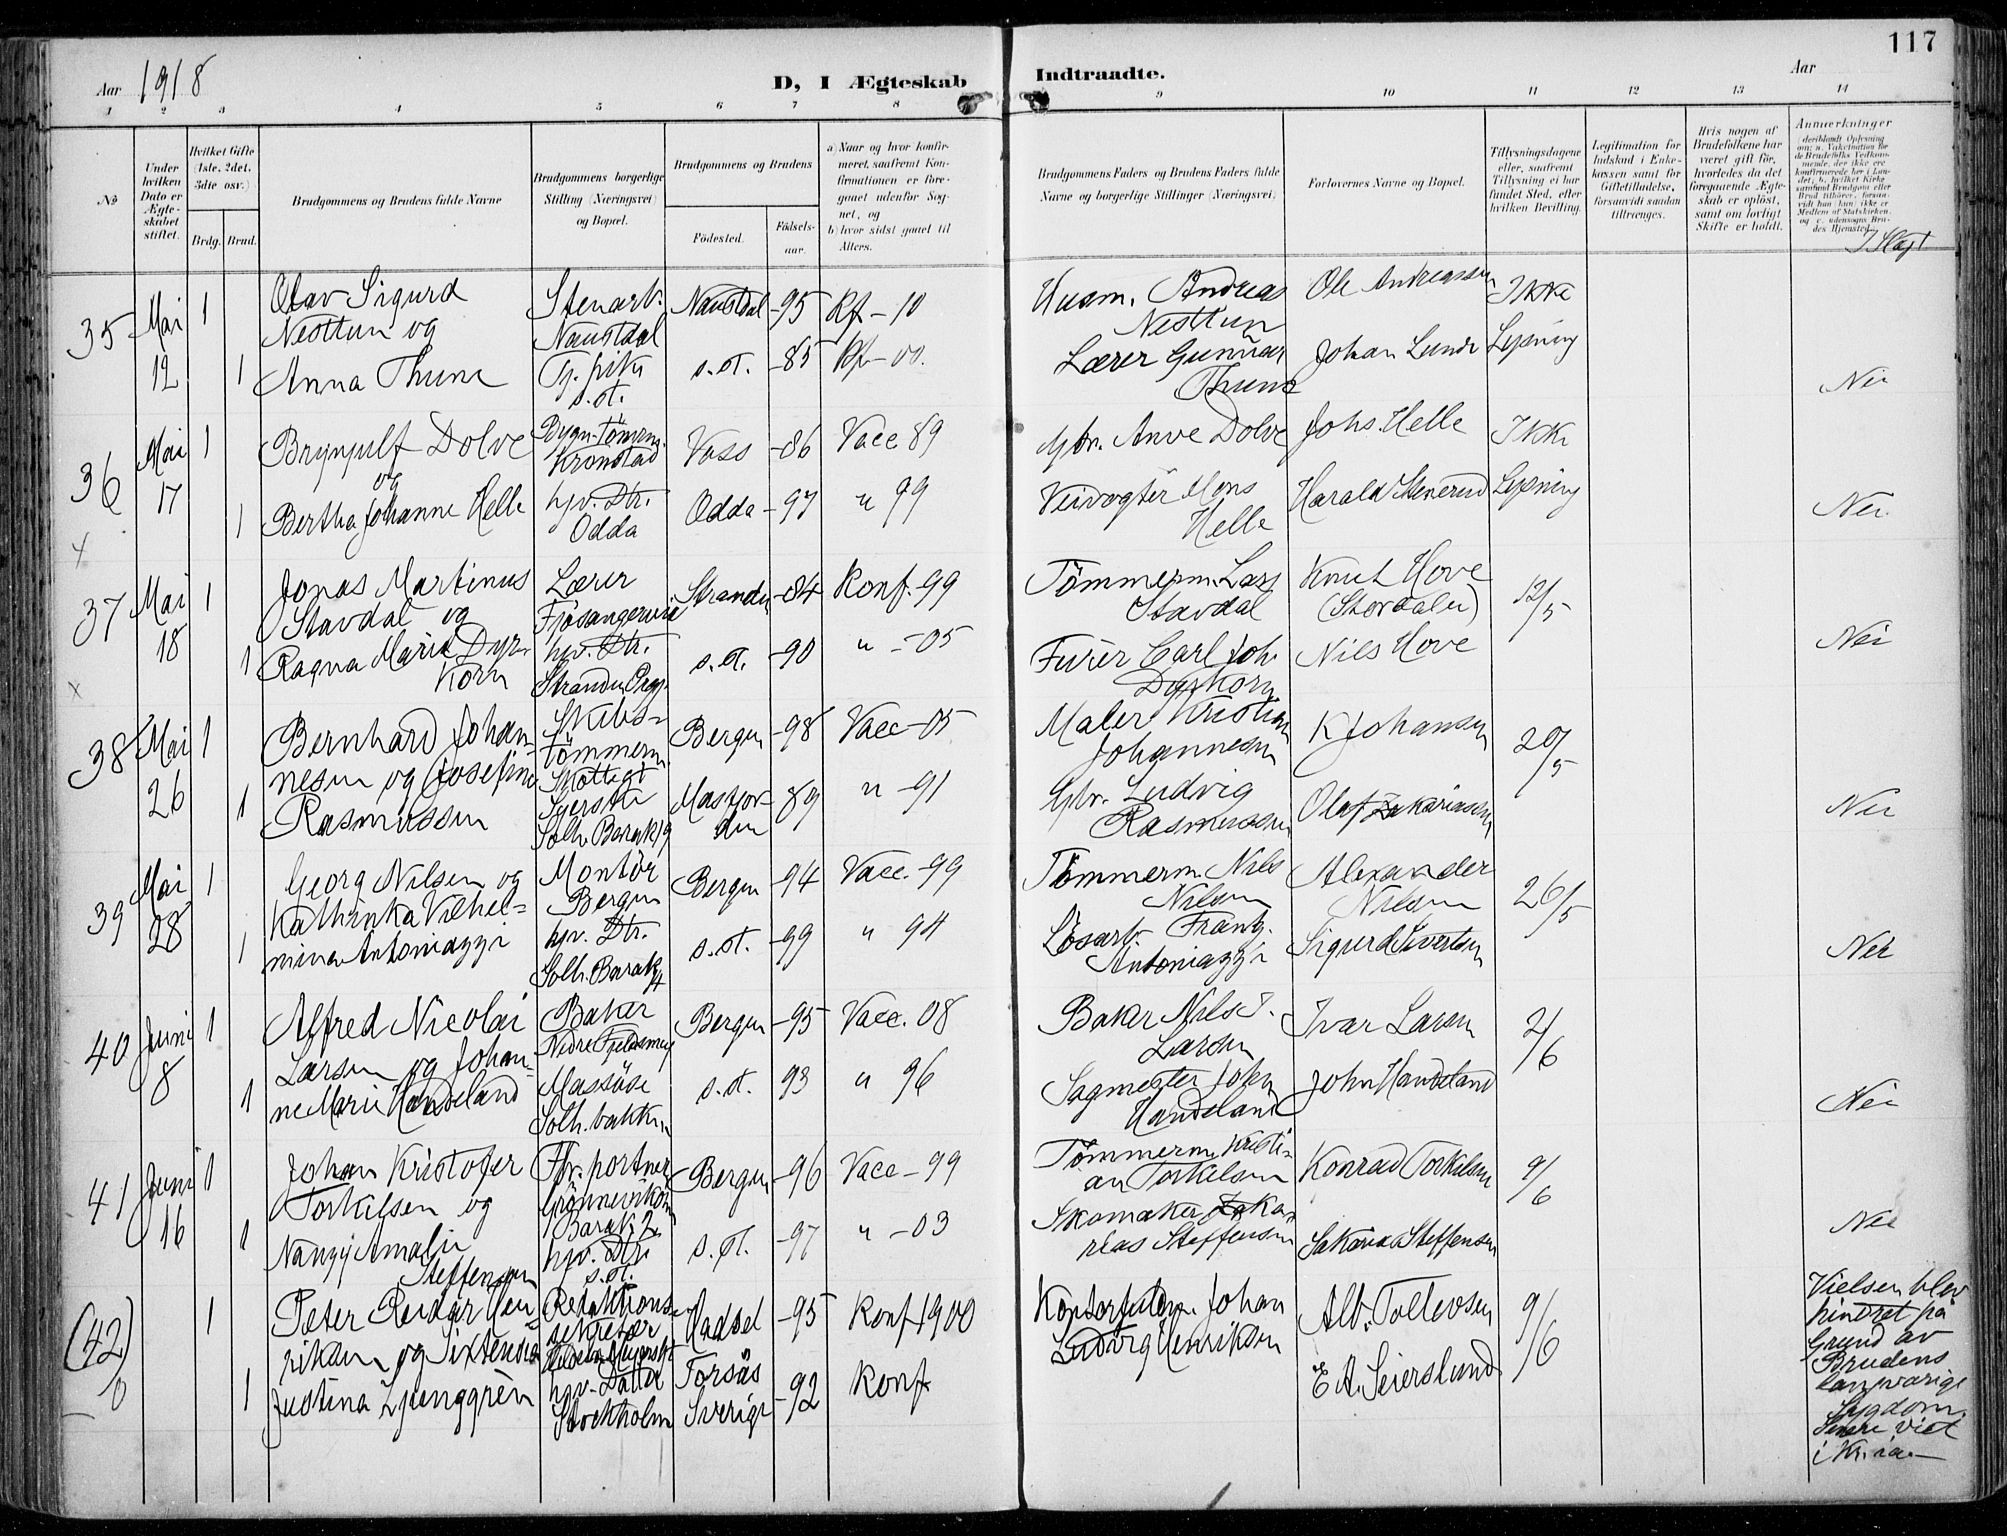 117
Aar 1918
D, I Ægteskab Indtraadte.
Aar
1 2 3 4 5 6 7 8 9 10 11 12 13 14
No
Under hvilken Dato er Ægteskabet stiftet.
Hvilket Gifte (1ste, 2det, 3die osv.)
Brdg. Brud.
Brudgommens og Brudens fulde Navne
Brudgommens borgerlige Stilling (Næringsvei) og Bopæl.
Brudgommens og Brudens
Fødested.
Fødselsaar.
a) Naar og hvor konfirmeret, saafremt Konfirmationen er foregaaet udenfor Sognet, og
b) hvor sidst gaaet til Alters.
Brudgommens Faders og Brudens Faders fulde Navne og borgerlige Stillinger (Næringsvei)
Forlovernes Navne og Bopæl.
Tillysningsdagene eller, saafremt Tillysning ei har fundet Sted, efter hvilken Bevilling.
Legitimation for Indskud i Enkekassen samt for Giftetilladelse, forsaavidt saadan tiltrænges.
Hvis nogen af Brudefolkene har været gift før, hvorledes da det foregaaende Ægteskab er opløst, samt om lovligt Skifte er holdt.
Anmærkninger
I Slægt
35 Mai 12 1 Olav Sigurd Nesttun og
Stenarb. Naustdal
Naustdal -95 Kf - 10
Husm. Andreas Nesttun
Ole Andreassen
Ikke Lysning
1 Anna Thune
Tj. pike s. st.
s. st. -85 Kf - 00.
Lærer Gunnar Thune
Johan Lunde
Nei
36 Mai 17 1 Brynjulf Dolve og
Kronstad
Voss -86 Vacc 89
Gbr. Anve Dolve
Johs. Helle
Ikke Lysning
1 Bertha Johanne Helle
hjv. Dtr. Odda
Odda -97 " 99
Veivogter Mons Helle
Harald Stenerud
Nei
x
37 Mai 18 1 Jonas Martinus Stavdal og
Lærer Fjøsangerveien
-84 Konf. 99
Tømmerm. Lars Stavdal
Knut Hove
12/5
1 Ragna Marie Dyrkorn
hjv. Dtr.
s. st. -90 " -05
Furer Carl Joh. Dyrkorn
Nils Hove
Nei
x
38 Mai 26 1 Bernhard Johannesen og Josefine Rasmussen
Skibstømmerm.
Bergen -98 Vacc -05
Maler Kristian Johannesen
K Johansen
20/5
1
Syerske
Solh. Barak 19
Masfjorden 89 " -91
Gbr. Ludvig Rasmussen
Olaf Zakariassen
Nei
39 Mai 28 1 Georg Nilsen og
Montør Bergen
Bergen -94 Vacc. -99
Tømmerm. Nils Nilsen
Alexander Nilsen
26/5
1 Kathrinka Vilhelmina Antoniazzi
hjv. Dtr. Solh. Barak
s. st. -99 " 94
Løsarb. Frantz. Antoniazzi
Sigurd Sivertsen
Nei
40 Juni 8 1 Alfred Nicolai Larsen og Johanne Marie Handeland
Baker
Bergen -95 Vacc. 08
Baker Nils J. Larsen
Ivar Larsen
2/6
1
Massöse Solh. bakken
s. st. 93 " 96
Sagmester John Handeland
John Handeland
Nei
41 Juni 16 1 Johan Kristofer Torkilsen og
Fbr. portner
Barak 2
Bergen -96 Vacc - 99
Tømmerm. Kristian Torkilsen
Konrad Torkilsen
9/6
1 Nanzy Amalie Steffensen
hjv. Dtr. s. st.
s. st. -97 " -03
Skomaker Zakarias Steffensen
Sakarias Steffensen
Nei
(42) 0 1 Peter Reidar Henriksen og Sixtensia
Redaktionssekretær
Hadsel -95 Konf 1900
Johan Ludvig Henriksen
Alb. Tollevsen
9/6
1 Justina Ljunggrèn
hjv. Datter Stockholm
Torsås Sverige -92 Konf
E A. Seierslund
Vielsen blev hindret på Grund av Brudens langvarige Sygdom. Senere viet i Kr.ia